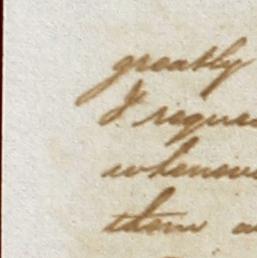 greatly
I reques
whenev
them a